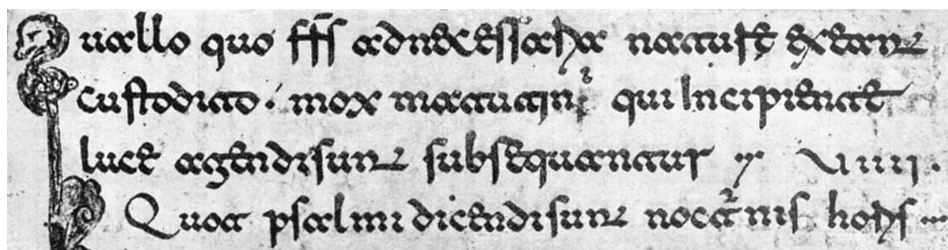 uallo quo fr̄s adnecessaria naturę exeant
custodito· mox matutini qui Incipiente
luce agendisunt subsequantur  VIIII·
Quot psalmi dicendisunt noct̄nis horis